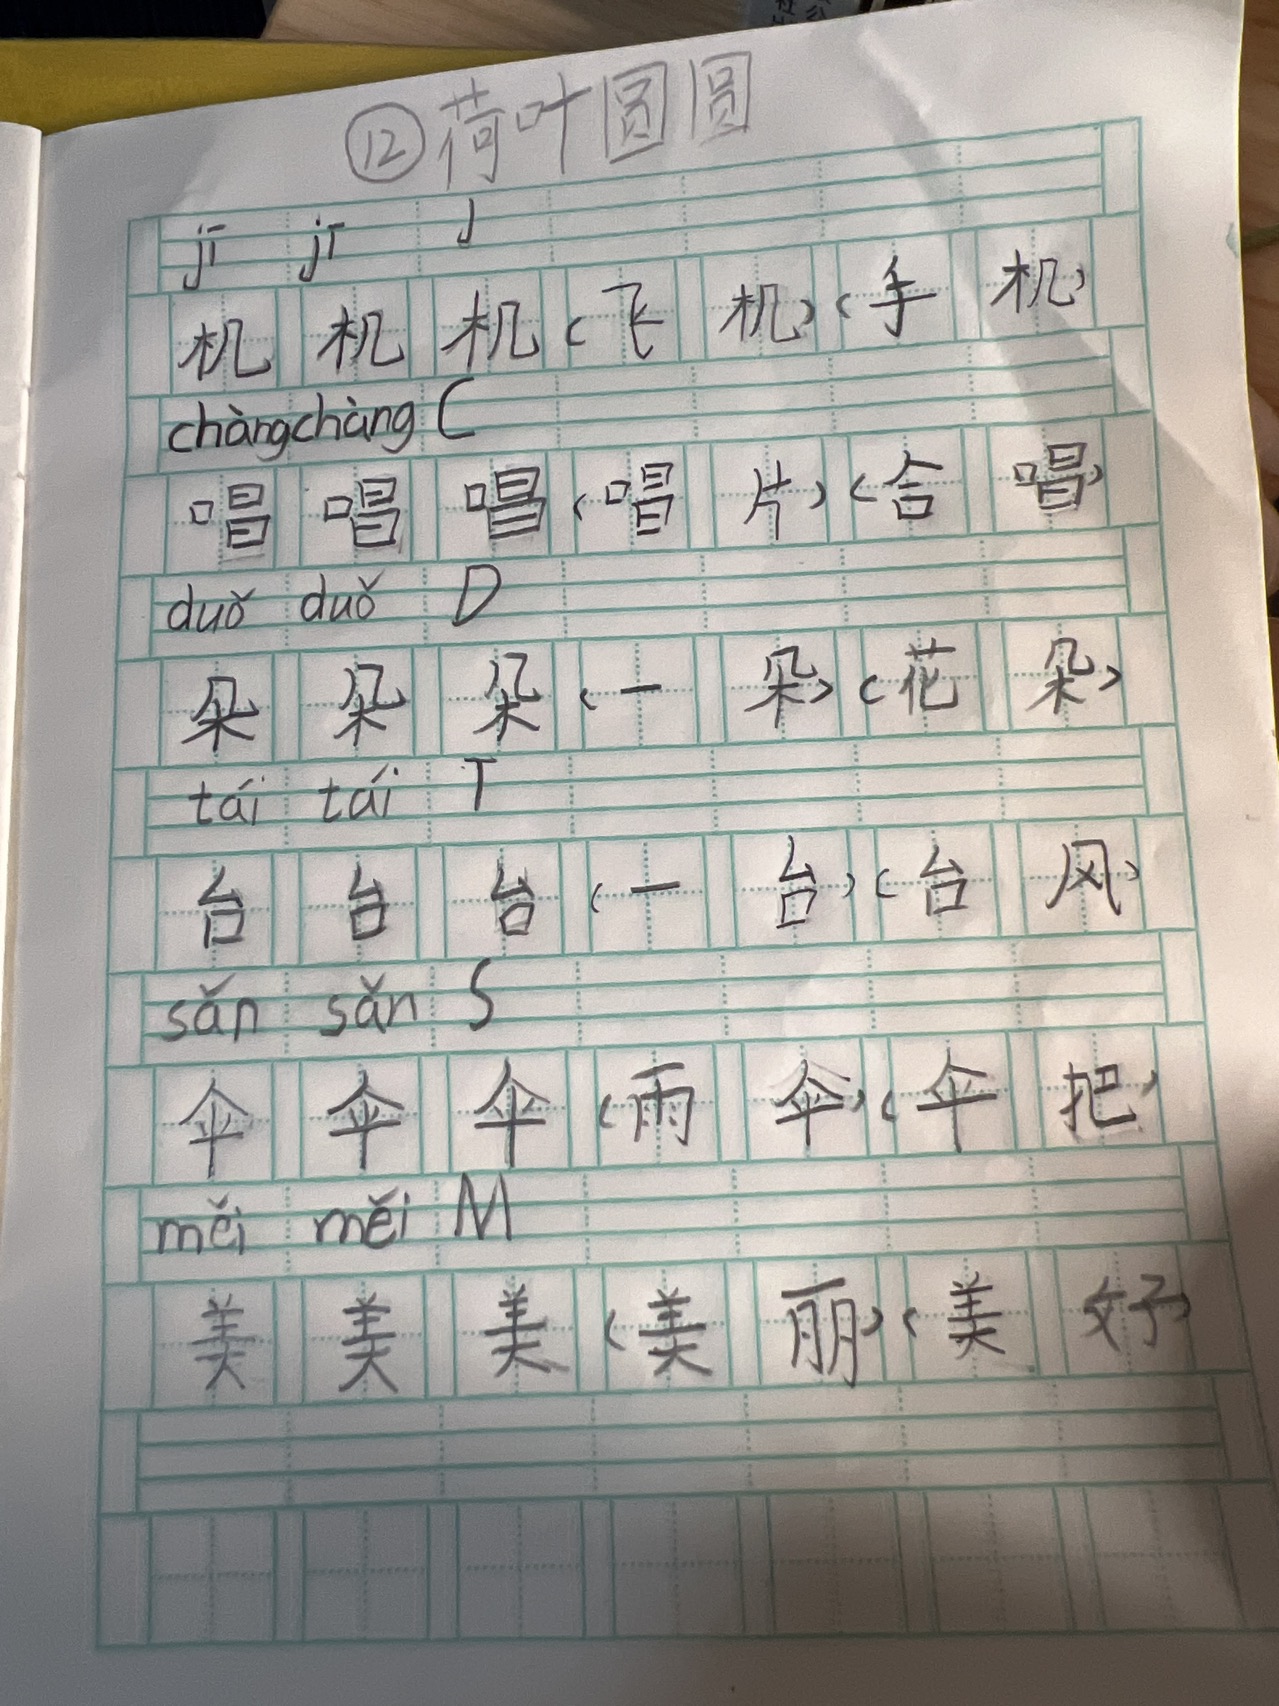 ⑫荷叶圆圆
jī jī J
机 机 机 (飞 机) (手 机)
chàng chàng C
唱 唱 唱 (唱 片) (合 唱)
duǒ duǒ D
朵 朵 朵 (一 朵) (花 朵)
tái tái T
台 台 台 (一 台) (台 风)
sǎn sǎn S
伞 伞 伞 (雨 伞) (伞 把)
měi měi M
美 美 美 (美 丽) (美 好)